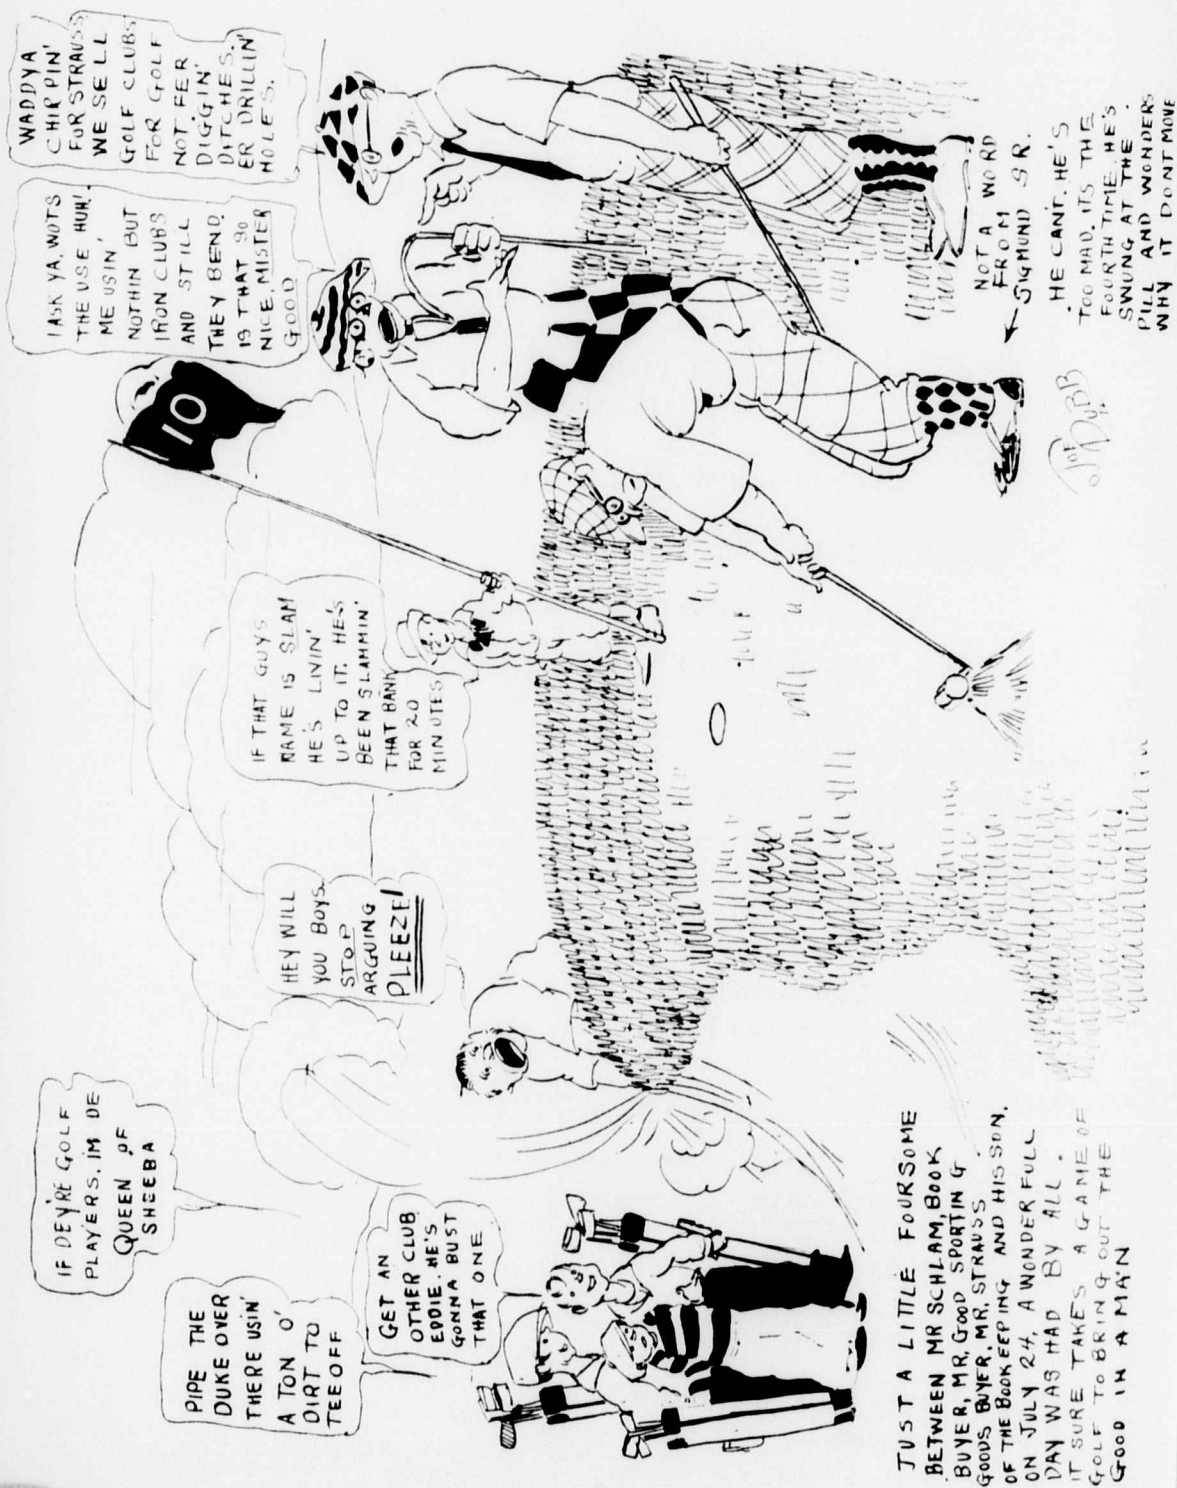 IF DEY'RE GOLF
PLAYERS. IM DE
QUEEN OF
SHEEBA
PIPE THE
DUKE OVER
THERE USIN'
A TON O'
DIRT TO
TEE OFF
GET AN
OTHER CLUB
EDDIE. HE'S
GONNA BUST
THAT ONE
HEY WILL
YOU BOYS.
STOP
ARGUING
PLEEZE!
IF THAT GUYS
NAME IS SLAM
HE'S LIVIN'
UP TO IT. HE'S
BEEN SLAMMIN'
THAT BANK
FOR 20
MINUTES
10
I ASK YA. WOTS
THE USE HUH!
ME USIN'
NOTHIN BUT
IRON CLUBS
AND STILL
THEY BEND.
IS THAT SO
NICE, MISTER
GOOD
WADDYA
CHIRPIN'
FOR STRAUSS
WE SELL
GOLF CLUBS
FOR GOLF
NOT FER
DIGGIN'
DITCHES.
ER DRILLIN'
HOLES.
JUST A LITTLE FOURSOME
BETWEEN MR SCHLAM, BOOK
BUYER, MR. GOOD SPORTING
GOODS BUYER, MR. STRAUSS
OF THE BOOKEEPING AND HIS SON.
ON JULY 24, A WONDERFULL
DAY WAS HAD BY ALL.
IT SURE TAKES A GAME OF
GOLF TO BRING OUT THE
GOOD IN A MAN
NOT A WORD
FROM
SIGMUND SR.
HE CANT. HE'S
TOO MAD. ITS THE
FOURTH TIME. HE'S
SWUNG AT THE
PILL AND WONDERS
WHY IT DONT MOVE